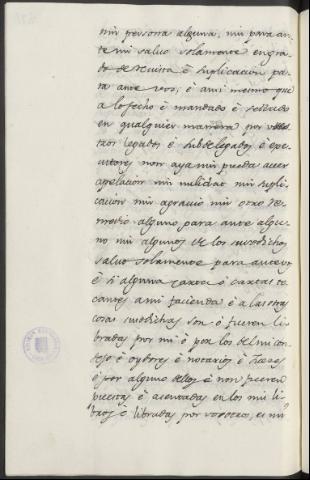 nin persona alguna, nin para an-
te mi salvo solamente en gra-
do de revista é suplicacion pa-
ra ante vos, é ami mesmo que
a lo fecho é mandado é
en qualquier manera por
legados é subdelegados é exe-
cutores non aya nin pueda aver
apelacion nin nulidad nin supli-
cacion nin agravio nin otro re-
medio alguno para ante algu-
no nin algunos de los susodichos
salvo solamente para ante vos
é si alguna carta ó cartas to-
cantes a mi facienda é a las otras
cosas susodichas son ó fueren li-
bradas por mi ó por los del mi con-
sejo ó oydores é notarios é
é por alguno dellos é non fueren
puestas é asentadas en los mis li-
bros é libradas por vosotros, ei mi